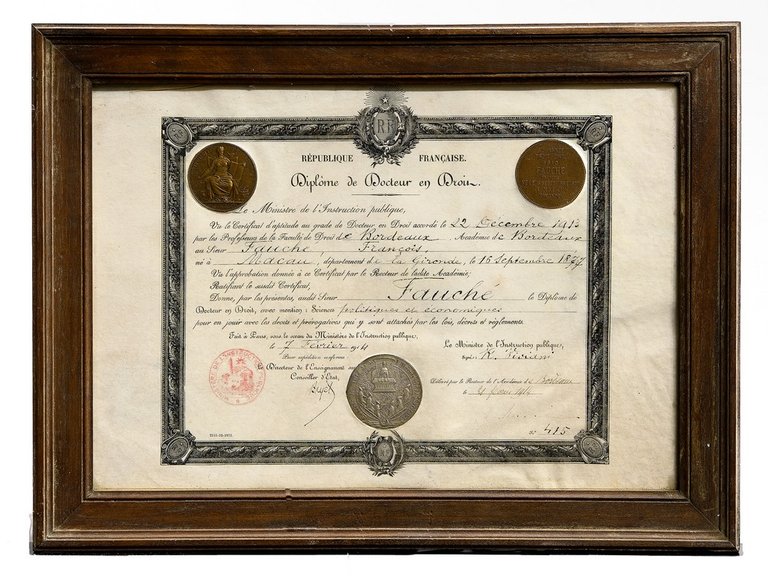 RF
RÉPUBLIQUE FRANÇAISE.
Diplôme de Docteur en Droit.
Le Ministre de l'Instruction publique,
Vu le Certificat d'aptitude au grade de Docteur en Droit accordé le 22 Décembre 1913
par les Professeurs de la Faculté de Droit de Bordeaux, Académie de Bordeaux
au Sieur Fauché François,
né à Macau, département de la Gironde, le 16 Septembre 1887,
Vu l'approbation donnée à ce Certificat par le Recteur de ladite Académie;
Ratifiant le susdit Certificat,
Donne, par les présentes, audit Sieur Fauché le Diplôme de
Docteur en Droit, avec mention: Sciences politiques et économiques
pour en jouir avec les droits et prérogatives qui y sont attachés par les lois, décrets et règlements.
Fait à Paris, sous le sceau du Ministère de l'Instruction publique,
le 7 Février 1914
Le Ministre de l'Instruction publique,
Pour expédition conforme:
Signé: R. Viviani
Le Directeur de l'Enseignement sup
Conseiller d'État,
Délivré par le Recteur de l'Académie de Bordeaux
le 1914
No 415
FAUCHÉ